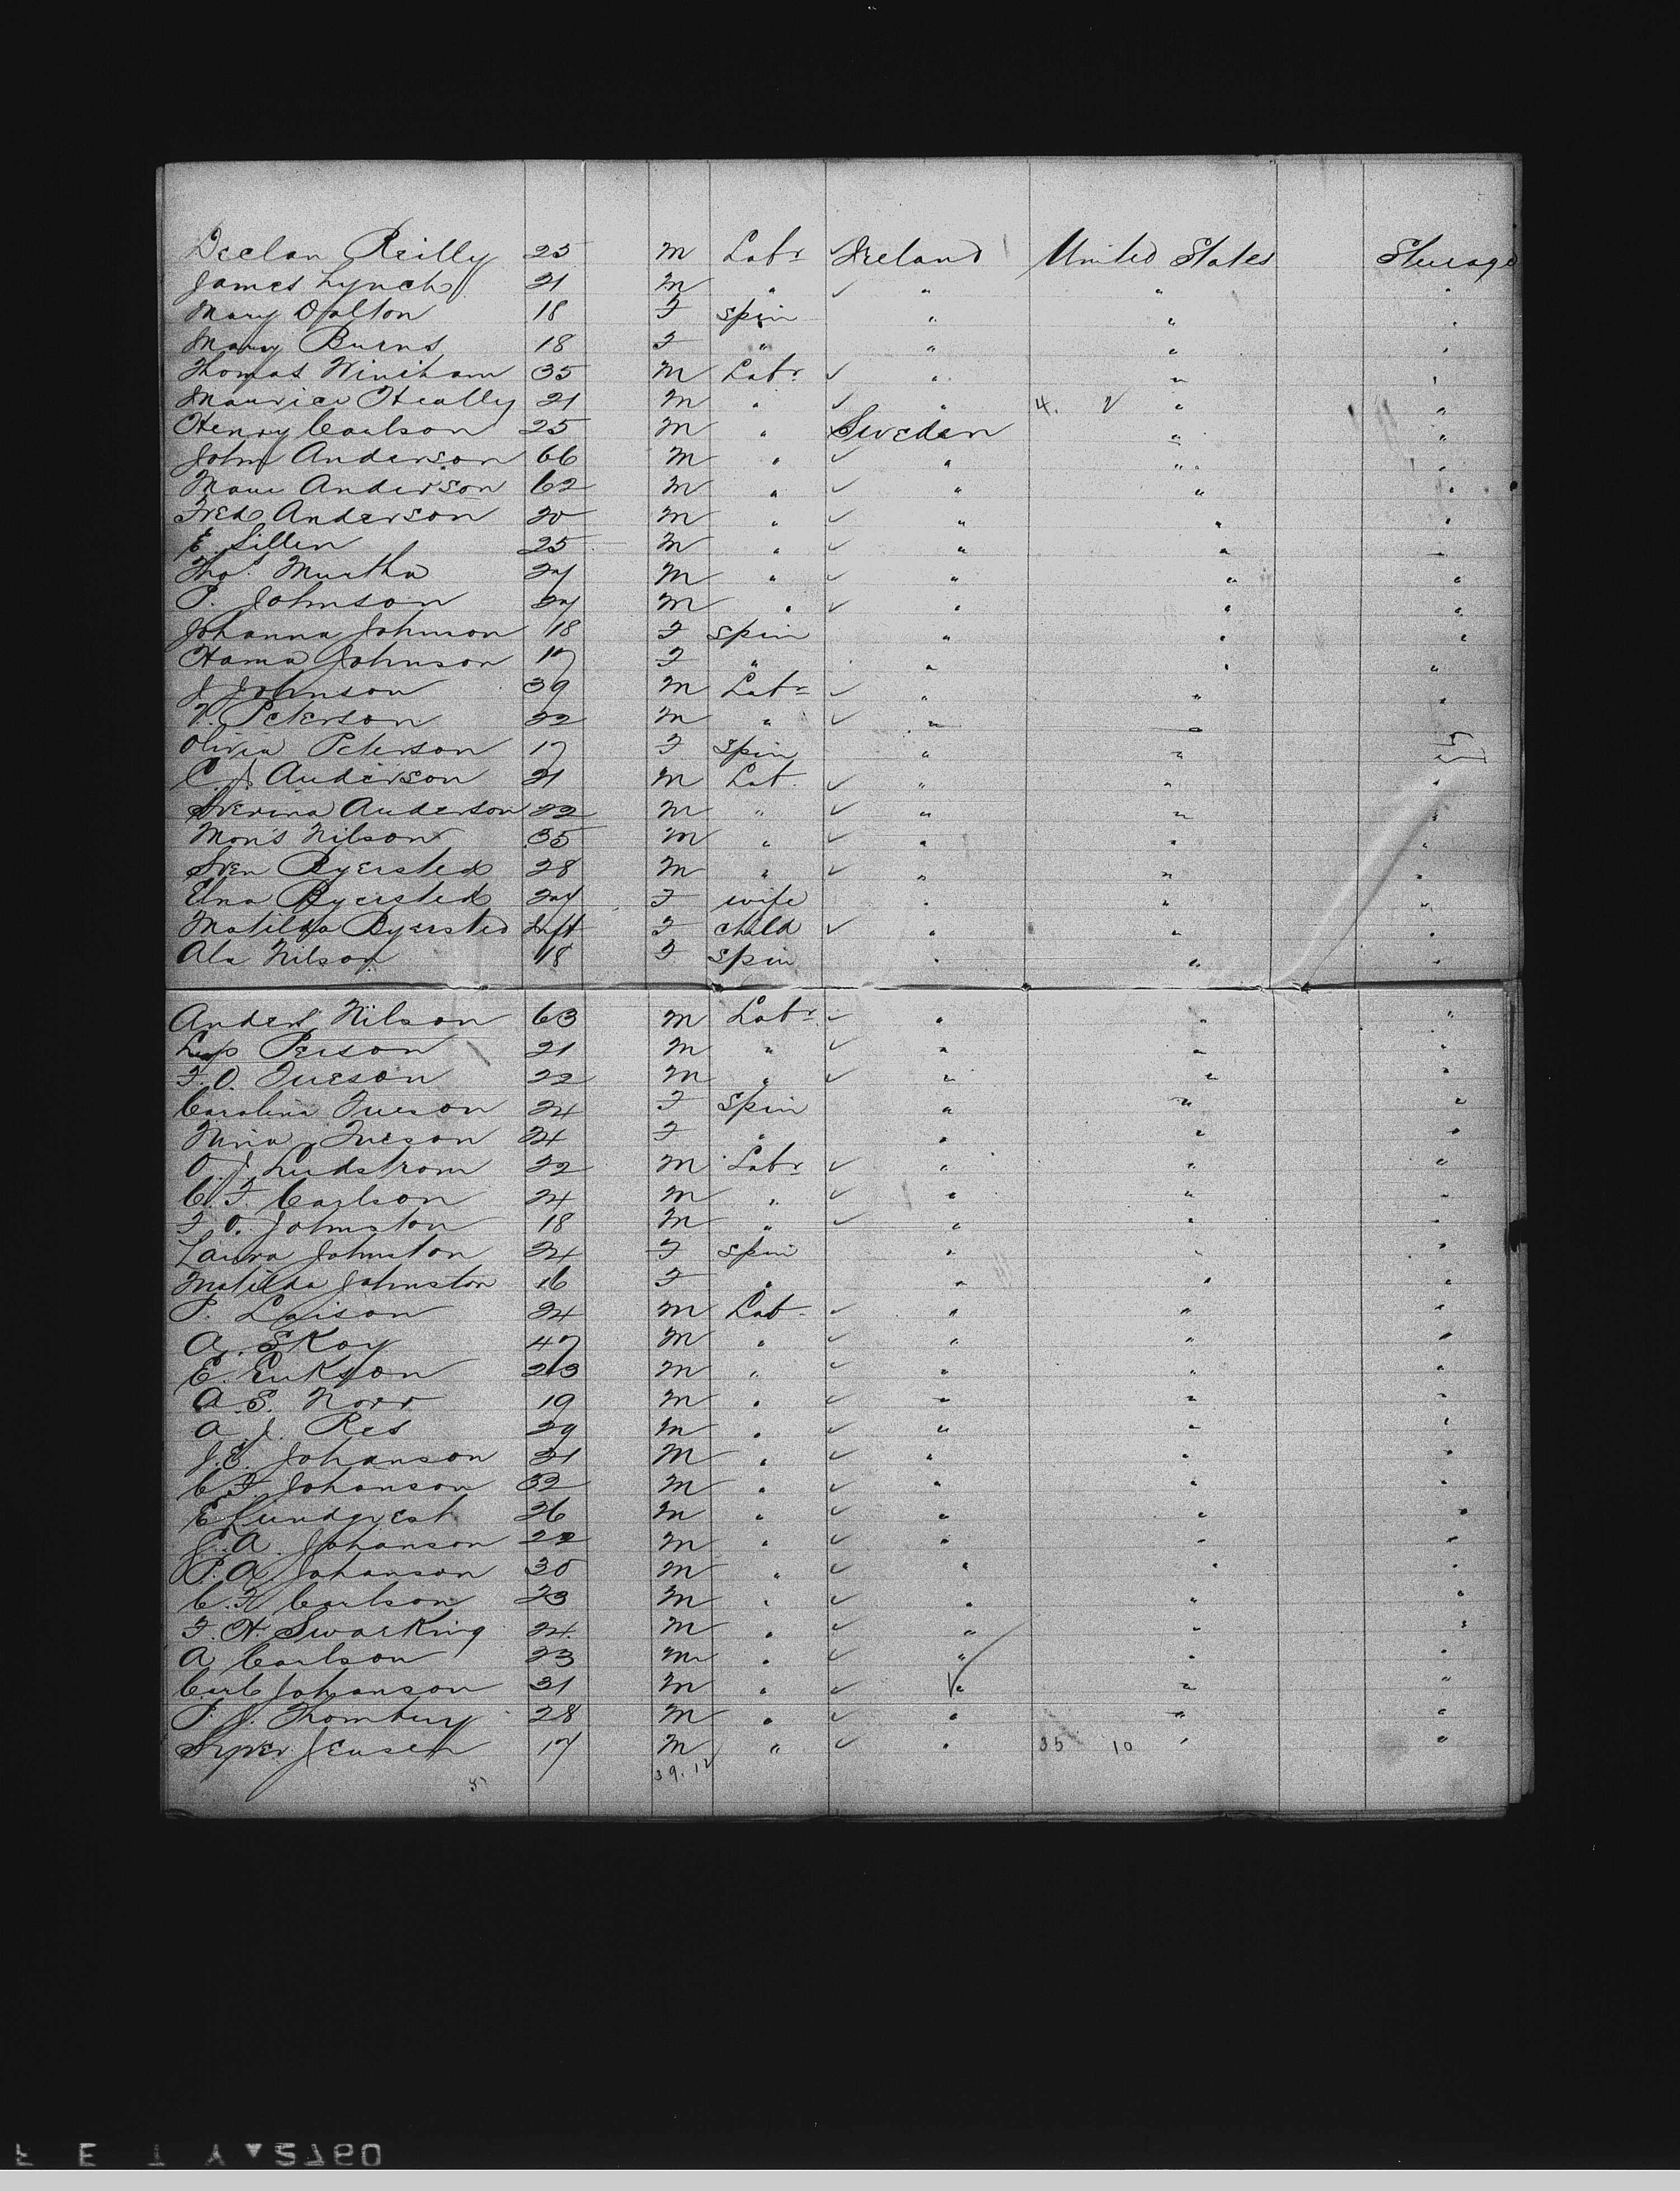 Declan Reilly 25 M Labr Ireland United States Steerage
James Lynch 21 M " " " "
Mary Dalton 18 F Spin " " "
Mary Burns 18 F " " " "
Thomas Winsham 35 M Labr " " "
Maurice Heally 21 M " " 4. " "
Henry Carlson 25 M " Sweden " "
John Anderson 66 M " " " "
Anderson 62 M " " " "
Fred Anderson 20 M " " " "
E. Sillen 25 M " " " "
Thos. Murtha 27 M " " " "
P. Johnson 27 M " " " "
Johanna Johnson 18 F Spin " " "
Hama Johnson 17 F " " " "
J Johnson 39 M Labr " " "
Peterson 22 M " " " "
Olivia Peterson 17 F Spin " "
C. J. Anderson 21 M Lab " " "
Anderson 22 M " " " "
Mons Nilson 35 M " " " "
Sven Byersted 28 M " " " "
Elna Byersted 27 F wife " " "
Matilda Byersted Inft F child " " "
Ala Nilson 18 F Spin " " "
Anders Nilson 63 M Labr " " "
Person 21 M " " " "
F. O. 22 M " " " "
Carolina 24 F Spin " " "
Nina 24 F " " " "
O. J. Ludstrom 22 M Labr " " "
C. F. Carlson 24 M " " " "
F. O. Johnston 18 M " " " "
Laura Johnston 24 F Spin " " "
Matilda Johnston 16 F " " " "
P. Laison 24 M Lab " " "
A. Skoy 47 M " " " "
E. Erikson 23 M " " " "
A. E. Norr 19 M " " " "
A. J. Res 29 M " " " "
J. E. Johanson 21 M " " " "
C. F. Johanson 32 M " " " "
E Lundqvest 26 M " " " "
J. A. Johanson 22 M " " " "
P. A. Johanson 30 M " " " "
C. F. Carlson 23 M " " " "
F. H. Swarking 24 M " " " "
A Carlson 23 M " " " "
Carl Johanson 31 M " " " "
P. J. Thombery 28 M " " " "
Jensen 17 M " " 35 10 " "
39. 12